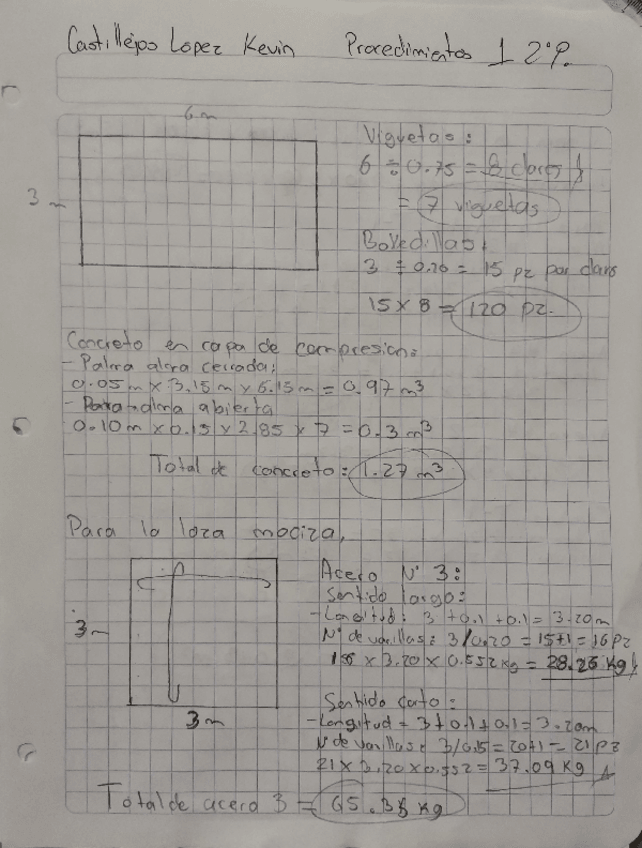 Castillejos Lopez Kevin Procedimientos 1 2°P.
6m
3m
Viguetas:
6 ÷ 0.75 = 8 claros
= 7 viguetas
Bovedillas:
3 ÷ 0.20 = 15 pz por claro
15 x 8 = 120 pz.
Concreto en capa de compresion:
- Palma alma cerrada:
0.05m x 3.15m x 6.15m = 0.97 m³
- Para alma abierta
0.10m x 0.15 x 2.85 x 7 = 0.3 m³
Total de concreto: 1.27 m³
Para la loza maciza,
3m
3m
Acero N° 3:
Sentido largo:
- Longitud: 3 + 0.1 + 0.1 = 3.20m
N° de varillas: 3/0.20 = 15+1 = 16 pz
16 x 3.20 x 0.552 kg = 28.26 kg
Sentido corto:
- Longitud = 3 + 0.1 + 0.1 = 3.20m
N° de varillas: 3/0.15 = 20+1 = 21 pz
21 x 3.20 x 0.552 = 37.09 kg
Total de acero 3 = 65.35 kg